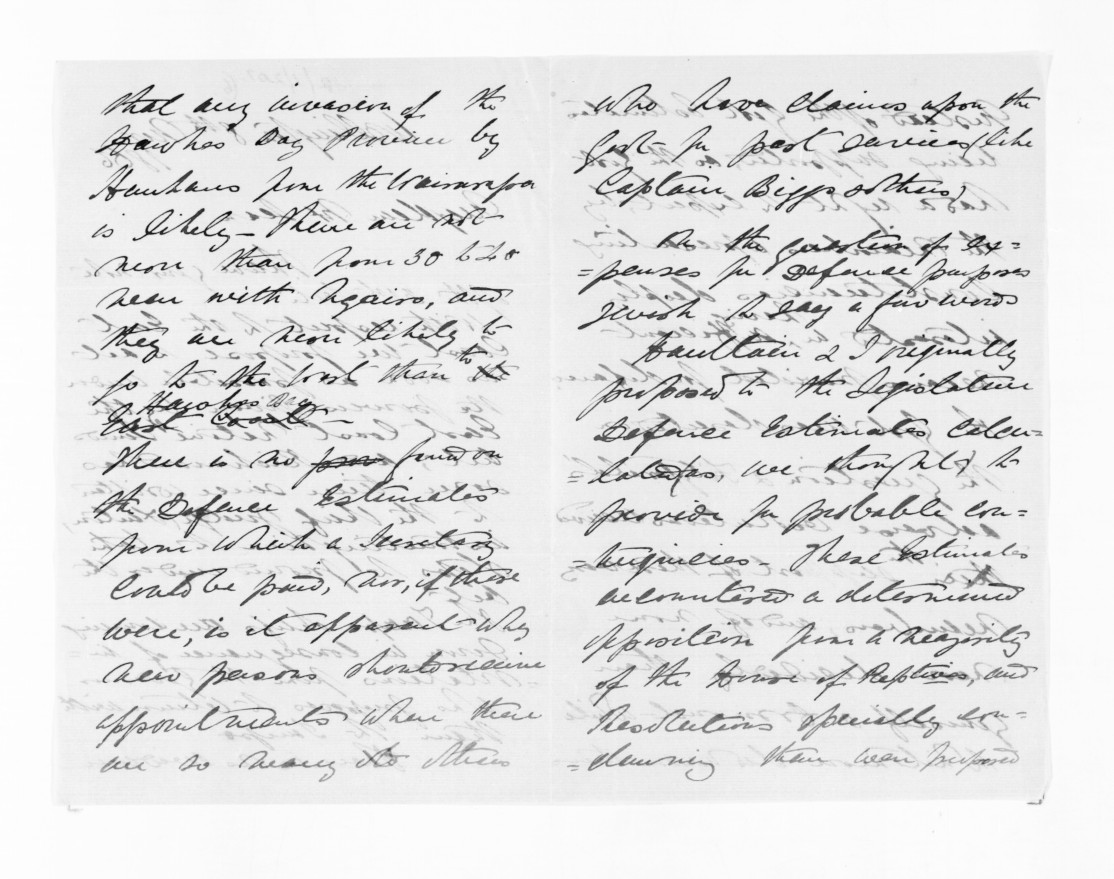 that any invasion of the
Hawkes' Bay Province by
Hauhaus from the Wairarapa
is likely – There are not
more than from 30 to 40
men with Ngairo, and
they are more likely to
go to the West than to the
Hawkes Bay
East Coast –
There is no from fund on
the Defence Estimates
from which a Secretary
could be paid, nor, if there
were, is it apparent why
new persons should receive
appointments when there
are so many others
who have claims upon the
Govt for past services (like
Captain Biggs & others)
On the question of ex=
=penses for Defence purposes
I wish to say a few words
Haultain & I originally
proposed to the Legislature
Defence Estimates calcu=
=lated (as, we thought) to
provide for probable con=
=tingencies – These Estimates
encountered a determined
opposition from a majority
of the House of Reptives, and
Resolutions specially con=
=demning them were proposed